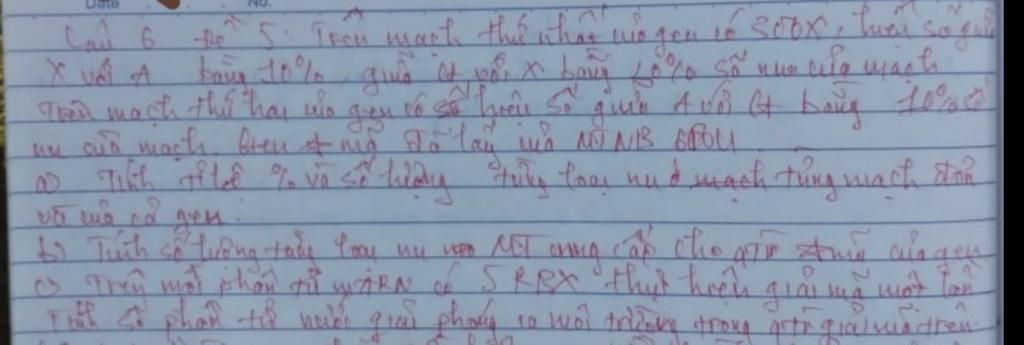 Date No.
Câu 6 Đề 5: Trên mạch thứ nhất của gen có 300X, hiệu số giữa
X với A bằng 10%, giữa G với X bằng 20% số nu của mạch
Trên mạch thứ hai của gen có số hiệu số giữa A với G bằng 10% số
nu của mạch. Gen mã đã lấy của MTNB 600U
a) Tính tỉ lệ % và số lượng từng loại nu ở mạch từng mạch đơn
và của cả gen.
b) Tính số lượng từng loại nu MT cung cấp cho qtr mã của gen
c) Trên mỗi phân tử mARN có 5 RBX thực hiện giải mã một lần
Tính số phân tử nước giải phóng ra môi trường trong qtr giải mã trên.